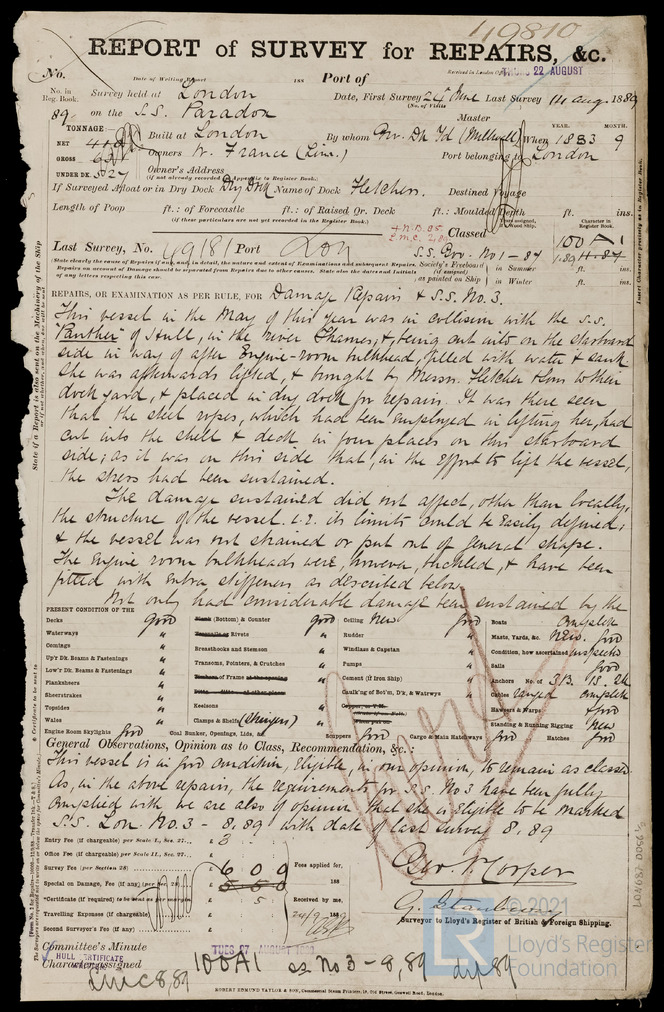 49810
REPORT of SURVEY for REPAIRS, &c.
No. Date of Writing Report 188 Port of Received in London Office THURS 22 AUGUST
No. in Reg. Book. Survey held at London Date, First Survey 24th June Last Survey 14 Aug. 1889
(No. of Visits
89 on the S.S. Paradox Master
TONNAGE: Built at London By whom When YEAR. 1883 MONTH. 9
NET
GROSS Owners W. France (Lim.) Port belonging to London
UNDER DK. 527 Owner's Address
(if not already recorded in Appendix to Register Book.)
If Surveyed Afloat or in Dry Dock Dry Dock Name of Dock Fletchers. Destined Voyage
Length of Poop ft.: of Forecastle ft.: of Raised Qr. Deck ft.: Moulded Depth ft. ins.
(if these particulars are not yet recorded in the Register Book.)
Classed 100 A1
Last Survey, No. 49181 Port Lon S.S. No 1-87
REPAIRS, OR EXAMINATION AS PER RULE, FOR Damage Repairs & S.S. No. 3.
This vessel in the May of this year was in collision with the S.S.
"Panther" of Hull, in the river Thames; & being cut into on the starboard
side in way of after Engine-room bulkhead, filled with water & sank.
She was afterwards lifted, & brought by Messrs. Fletcher & Sons to their
dock yard, & placed in dry dock for repairs. It was there seen
that the steel ropes, which had been employed in lifting her, had
cut into the shell & deck in four places on this starboard
side; as it was on this side that, in the effort to lift the vessel,
the stress had been sustained.
The damage sustained did not affect, other than locally,
the structure of the vessel i.e. its limits could be easily defined;
& the vessel was not strained or put out of general shape.
The Engine room bulkheads were, however, buckled, & have been
fitted with extra stiffeners as described below.
Not only had considerable damage been sustained by the
PRESENT CONDITION OF THE
Decks good (Bottom) & Counter good Ceiling New good Boats complete
Waterways " Rivets " Rudder " Masts, Yards, &c. New. good
Comings " Breasthooks and Stemson Windlass & Capstan " Condition, how ascertained inspected
Up'r Dk. Beams & Fastenings " Transoms, Pointers, & Crutches Pumps " Sails good
Low'r Dk. Beams & Fastenings " Cement (if Iron Ship) " Anchors No. of 3B. 1S. 2K
Planksheers " Caulk'ng of Bot'm, D'k, & Watrways " Cables ranged complete
Sheerstrakes " Hawsers & Warps good
Topsides " Keelsons " Standing & Running Rigging New
Wales " Clamps & Shelfs (Stringers) "
Engine Room Skylights good Coal Bunker, Openings, Lids, &c. " Scuppers good Cargo & Main Hatchways good Hatches good
General Observations, Opinion as to Class, Recommendation, &c.:
This vessel is in good condition, eligible, in our opinion, to remain as classed.
As, in the above repairs, the requirements for S.S. No 3 have been fully
complied with we are also of opinion that she is eligible to be marked
S.S. Lon. No. 3 - 8, 89 with date of last survey 8, 89
Entry Fee (if chargeable) per Scale II., Sec. 27. . £
Office Fee (if chargeable) per Scale II., Sec. 27. . £
Survey Fee (per Section 28) £ 6 0 0 Fees applied for,
Special on Damage, Fee (if any) (per Sec. 28) £ 188
*Certificate (if required) to be sent as per margin £ 5 Received by me,
Travelling Expenses (if chargeable) £
Second Surveyor's Fee (if any) £ 188
Geo. P. Cooper
G. Stanbury
Surveyor to Lloyd's Register of British & Foreign Shipping.
Committee's Minute TUES 27 AUGUST 1889
Character assigned 100A1 ss No 3 - 8,89
HULL CERTIFICATE
LMC 8,89
ROBERT EDMUND TAYLOR & SON, Commercial Steam Printers, 19, Old Street, Goswell Road, London.
© 2021
LR
Lloyd's Register
Foundation